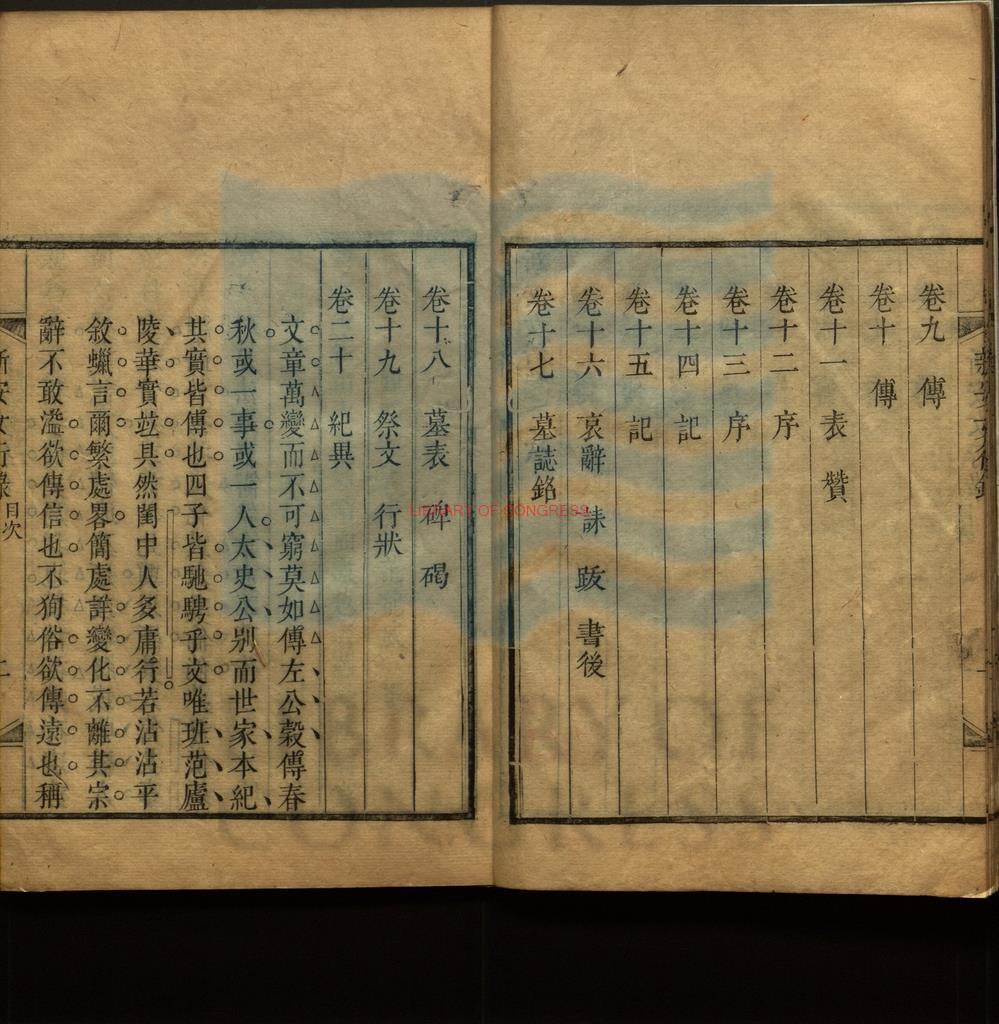 卷九 傳
卷十 傳
卷十一 表 贊
卷十二 序
卷十三 序
卷十四 記
卷十五 記
卷十六 哀辭 誄 跋 書後
卷十七 墓誌銘
卷十八 墓表 碑 碣
卷十九 祭文 行狀
卷二十 紀異
文章萬變而不可窮莫如傳左公穀傳春
秋或一事或一人太史公别而世家本紀
其實皆傳也四子皆馳騁乎文唯班范廬
陵華實竝具然閨中人多庸行若沾沾平
敘蠟言爾繁處畧簡處詳變化不離其宗
辭不敢溢欲傳信也不狥俗欲傳遠也稱
新安女行錄 目次 二
LIBRARY OF CONGRESS